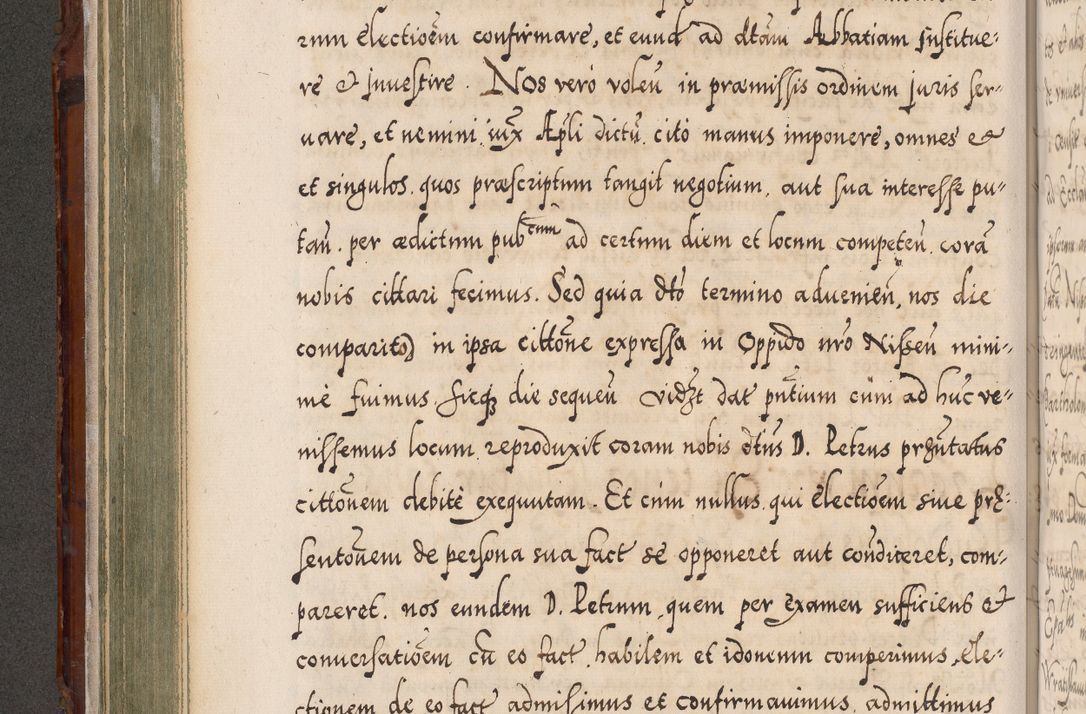 rum electioēm confirmare, et eund ad dtam Abbatiam Justitue-
re et investire. Nos vero voleū in præmissis ordinem juris ser-
uare, et nemini iux Apli dictū cito manus imponere, omnes et
et singulos quos præscriptum tangit negotium, aut sua interesse pu-
tāu per ædictum pubcum ad certum diem et locum competeū corā
nobis cittari fecimus. Sed quia dto termino adveniēu, nos die
comparitō in ipsa cittōne expressa in Oppido nrō Nisseū mini-
mè fuimus sicq die sequēu vidzt dat pntium cūm ad huc ve-
nissemus locum reproduxit coram nobis dtus D. Petrus przntatus
cittōnem debitè exequutam. Et cum nullus qui electioēm siue prē-
sentōuem de persona sua fact se opponeret aut condiceret, com-
pareret, nos eundem D. Petrum quem per examen sufficiens et
conuersatioēm cū eo fact habilem et idoneum comperimus, ele-
ctionem de eo fact admisimus et confirmauimus, admittimus